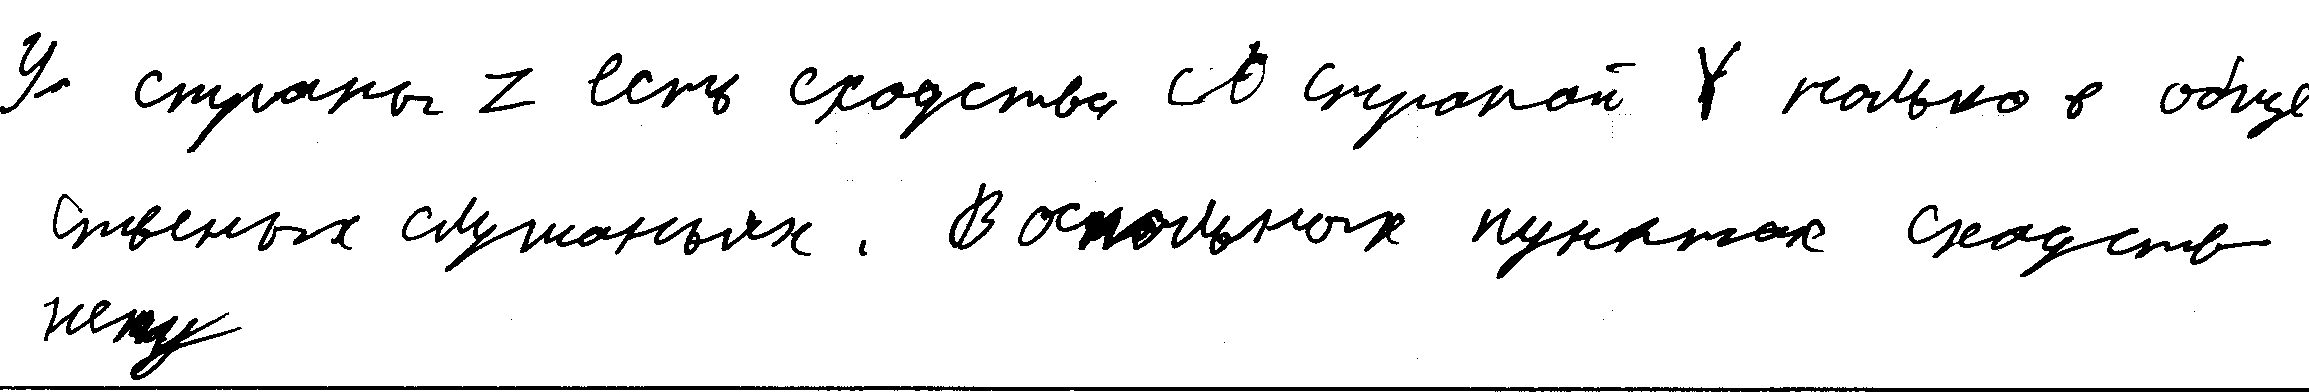 У страны Z есть сходства со страной Y только в обще
ственых слушаньях. В остольных пунктах сходств
нету